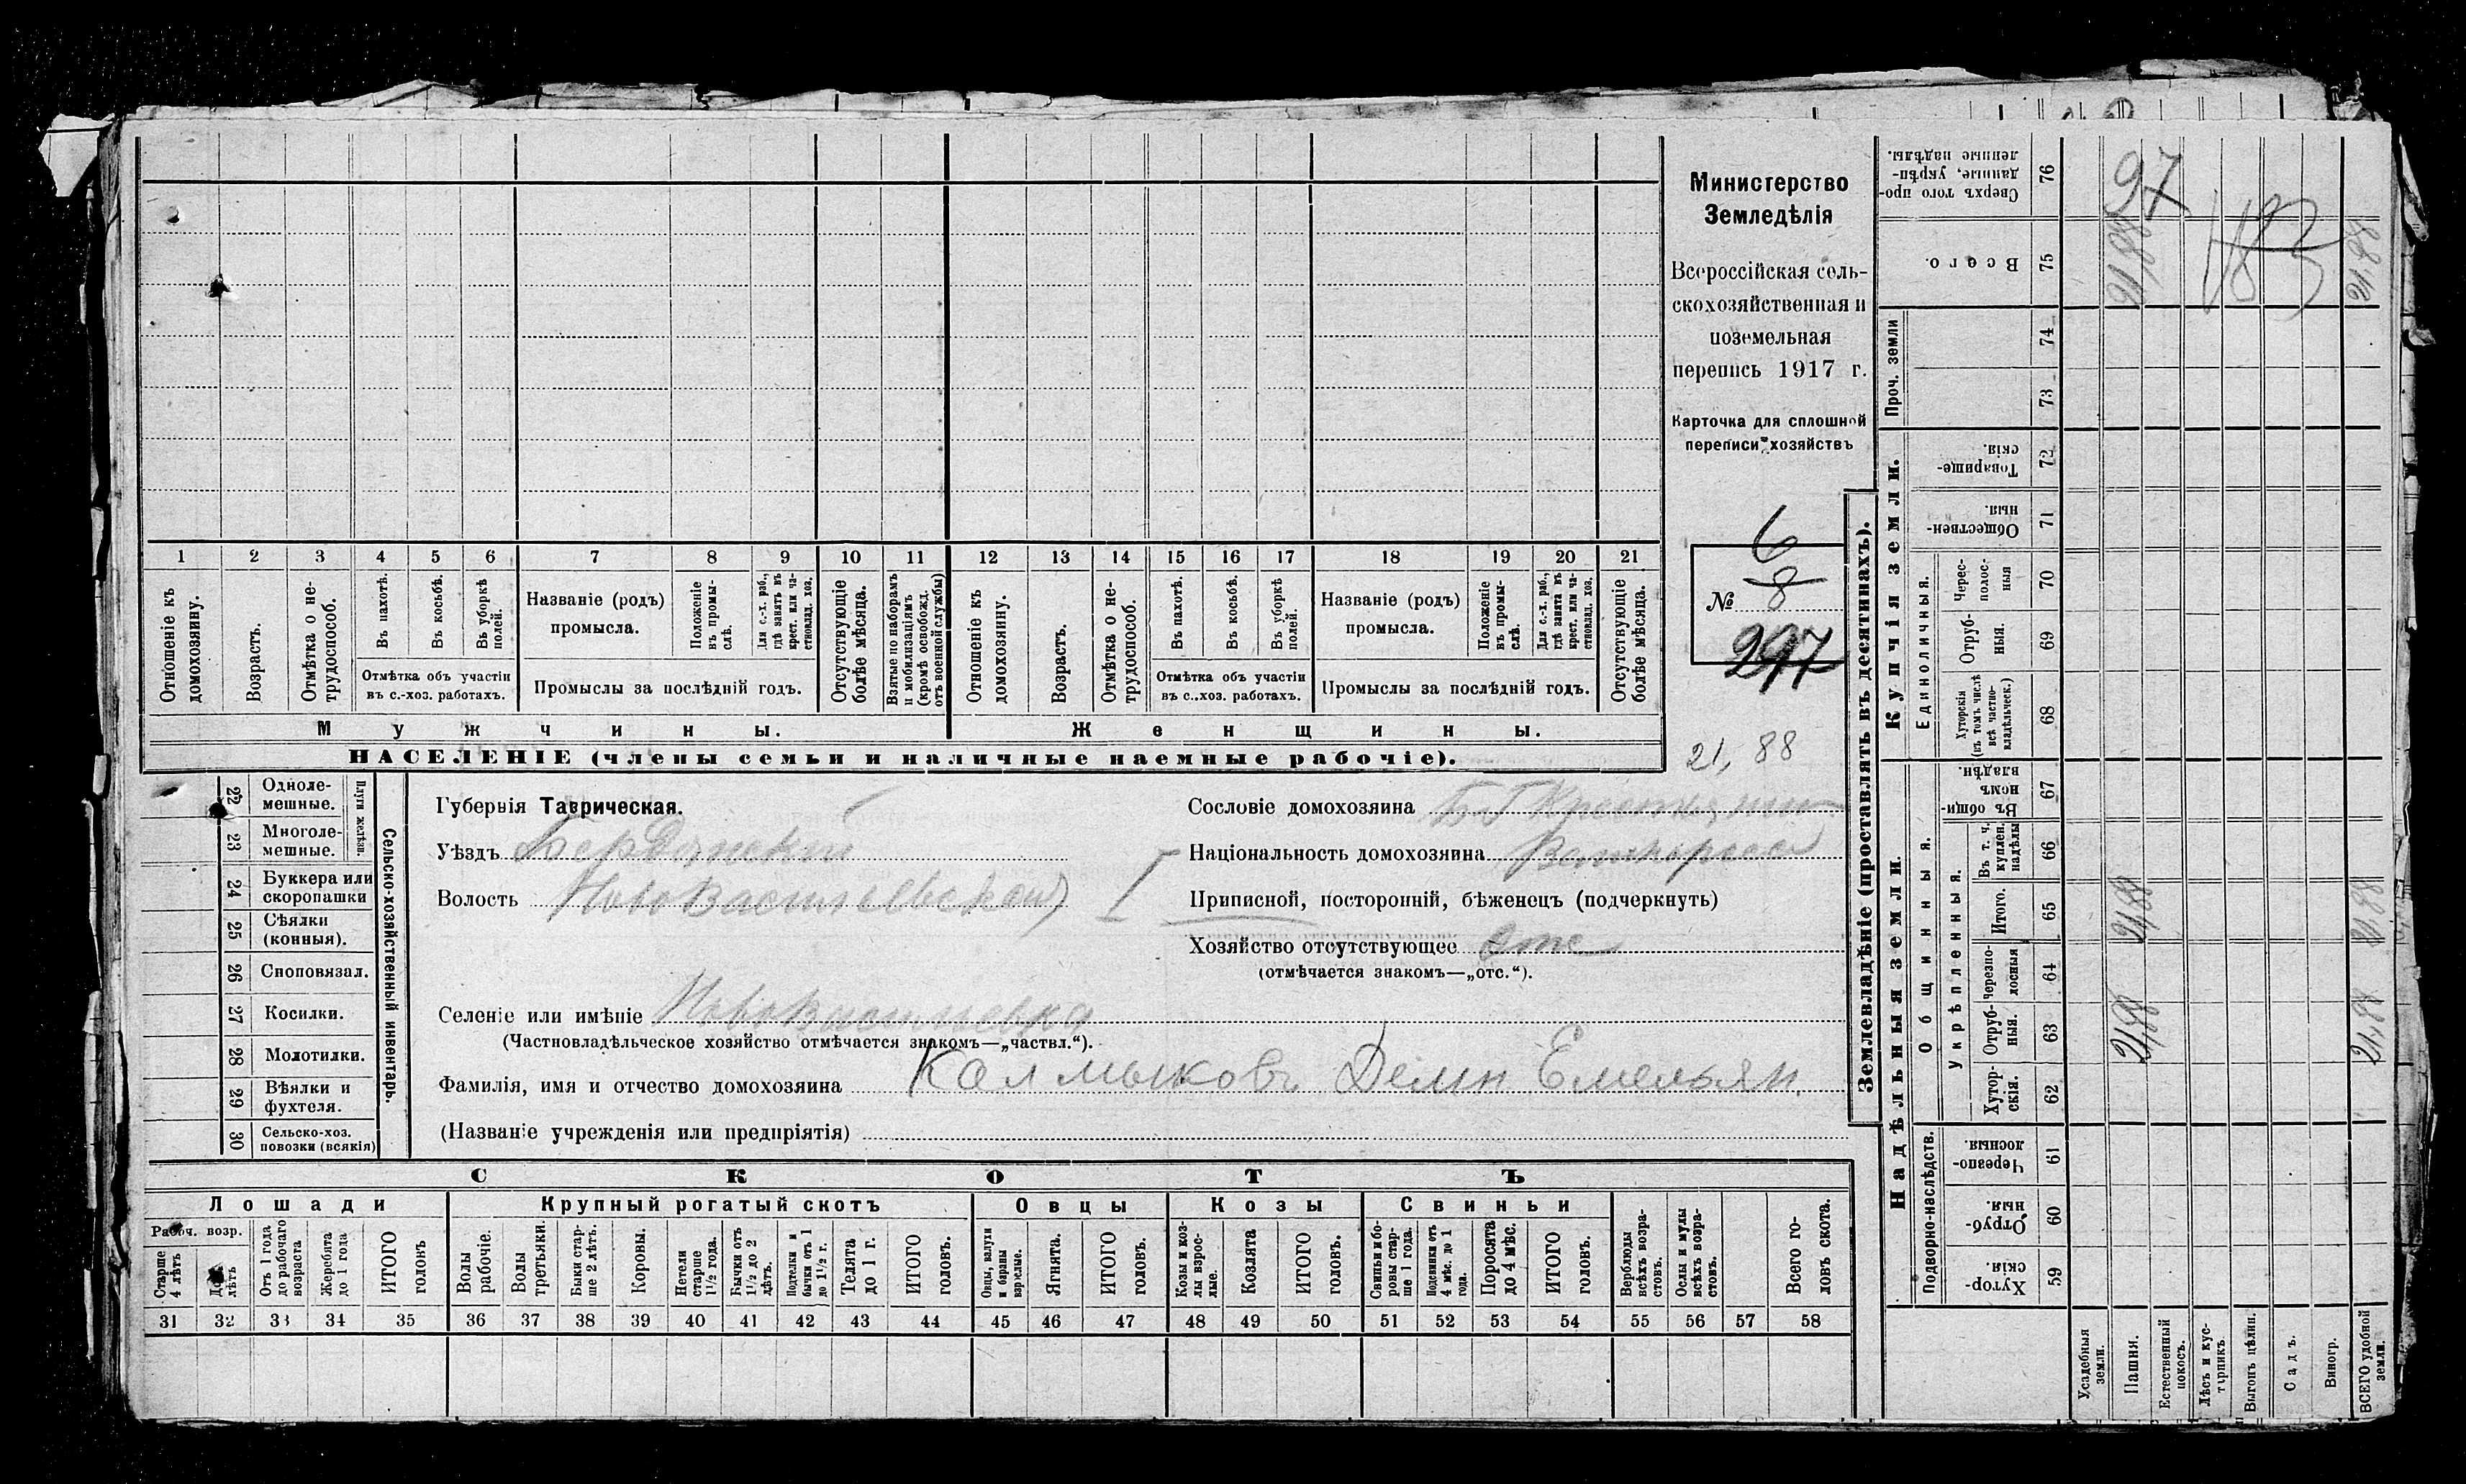 Министерство
Земледѣлія
Всероссійская сель-
скохозяйственная и
поземельная
перепись 1917 г.
Карточка для сплошной
переписи хозяйствъ
6
8
№
297
21,88
1 2 3 4 5 6 7 8 9 10 11 12 13 14 15 16 17 18 19 20 21
Отношеніе къ домохозяину.
Возрастъ.
Отмѣтка о не-трудоспособ.
Въ пахотѣ.
Въ косьбѣ.
Въ уборкѣ полей.
Отмѣтка объ участіи
въ с.-хоз. работахъ.
Названіе (родъ)
промысла.
Положеніе въ промы-слѣ.
Для с.-х. раб., гдѣ занятъ въ крест. или ча-стновлад. хоз.
Промыслы за послѣдній годъ.
Отсутствующіе болѣе мѣсяца.
Взятые по наборамъ и мобилизаціямъ (кромѣ освобожд. отъ военной службы)
Отношеніе къ домохозяину.
Возрастъ.
Отмѣтка о не-трудоспособ.
Въ пахотѣ.
Въ косьбѣ.
Въ уборкѣ полей.
Отмѣтка объ участіи
въ с.-хоз. работахъ.
Названіе (родъ)
промысла.
Положеніе въ промы-слѣ.
Для с.-х. раб., гдѣ занята въ крест. или ча-стновлад. хоз.
Промыслы за послѣдній годъ.
Отсутствующіе болѣе мѣсяца.
Мужчины.
Женщины.
НАСЕЛЕНІЕ (члены семьи и наличные наемные рабочіе).
22 Одноле-мешные.
23 Многоле-мешные.
Плуги желѣзн.
24 Буккера или скоропашки
25 Сѣялки (конныя).
26 Сноповязал.
27 Косилки.
28 Молотилки.
29 Вѣялки и фухтеля.
30 Сельско-хоз. повозки (всякія)
Сельско-хозяйственный инвентарь.
Губернія Таврическая.
Уѣздъ Бердянскій
Волость Нововасильевской
I
Селеніе или имѣніе Нововасильевка
(Частновладѣльческое хозяйство отмѣчается знакомъ—„частвл.“).
Фамилія, имя и отчество домохозяина Калмыковъ Демн Емельян.
(Названіе учрежденія или предпріятія)
Сословіе домохозяина
Національность домохозяина Великоросс
Приписной, посторонній, бѣженецъ (подчеркнуть)
Хозяйство отсутствующее Отс
(отмѣчается знакомъ—„отс.“).
СКОТЪ
Лошади
Крупный рогатый скотъ
Овцы
Козы
Свиньи
Рабоч. возр.
Старше 4 лѣтъ
До 4 лѣтъ
Отъ 1 года до рабочаго возраста
Жеребята до 1 года
ИТОГО головъ
Волы рабочіе.
Волы третьяки.
Быки стар-ше 2 лѣтъ.
Коровы.
Нетели старше 1½ года.
Бычки отъ 1½ до 2 лѣтъ.
Подтелки и бычки отъ 1 до 1½ г.
Телята до 1 г.
ИТОГО головъ.
Овцы, валухи и бараны взрослые.
Ягнята.
ИТОГО головъ.
Козы и коз-лы взрос-лые.
Козлята
ИТОГО головъ.
Свиньи и бо-ровы стар-ше 1 года.
Подсвинки отъ 4 мѣс. до 1 года.
Поросята до 4 мѣс.
ИТОГО головъ.
Верблюды всѣхъ возра-стовъ.
Ослы и мулы всѣхъ возра-стовъ.
Всего го-ловъ скота.
31 32 33 34 35 36 37 38 39 40 41 42 43 44 45 46 47 48 49 50 51 52 53 54 55 56 57 58
Землевладѣніе (проставлять въ десятинахъ).
Купчія земли.
Надѣльныя земли.
Сверхъ того про-данные, укрѣп-ленные надѣлы. 76
97
Всего. 75
21,88
183
21,88
Проч. земли
74
73
Товарище-скія 72
Обществен-ныя. 71
Единоличныя.
Черес-полос-ныя 70
Отруб-ныя. 69
Хуторскія (въ томъ числѣ всѣ частно-владѣльческ.) 68
Общинныя.
Въ общин-номъ владѣн. 67
Укрѣпленныя.
Въ т. ч. куплен. надѣлы 66
Итого. 65
21,88
21,88
Черезпо-лосныя 64
Отруб-ныя. 63
21,88
21,88
Хутор-скія. 62
Подворно-наслѣдств.
Черезпо-лосныя. 61
Отруб-ныя 60
Хутор-скія. 59
Усадебныя земли.
Пашня.
Естественный покосъ.
Лѣсъ и кус-тарникъ
Выгонъ цѣлин.
Садъ.
Виногр.
ВСЕГО удобной земли.